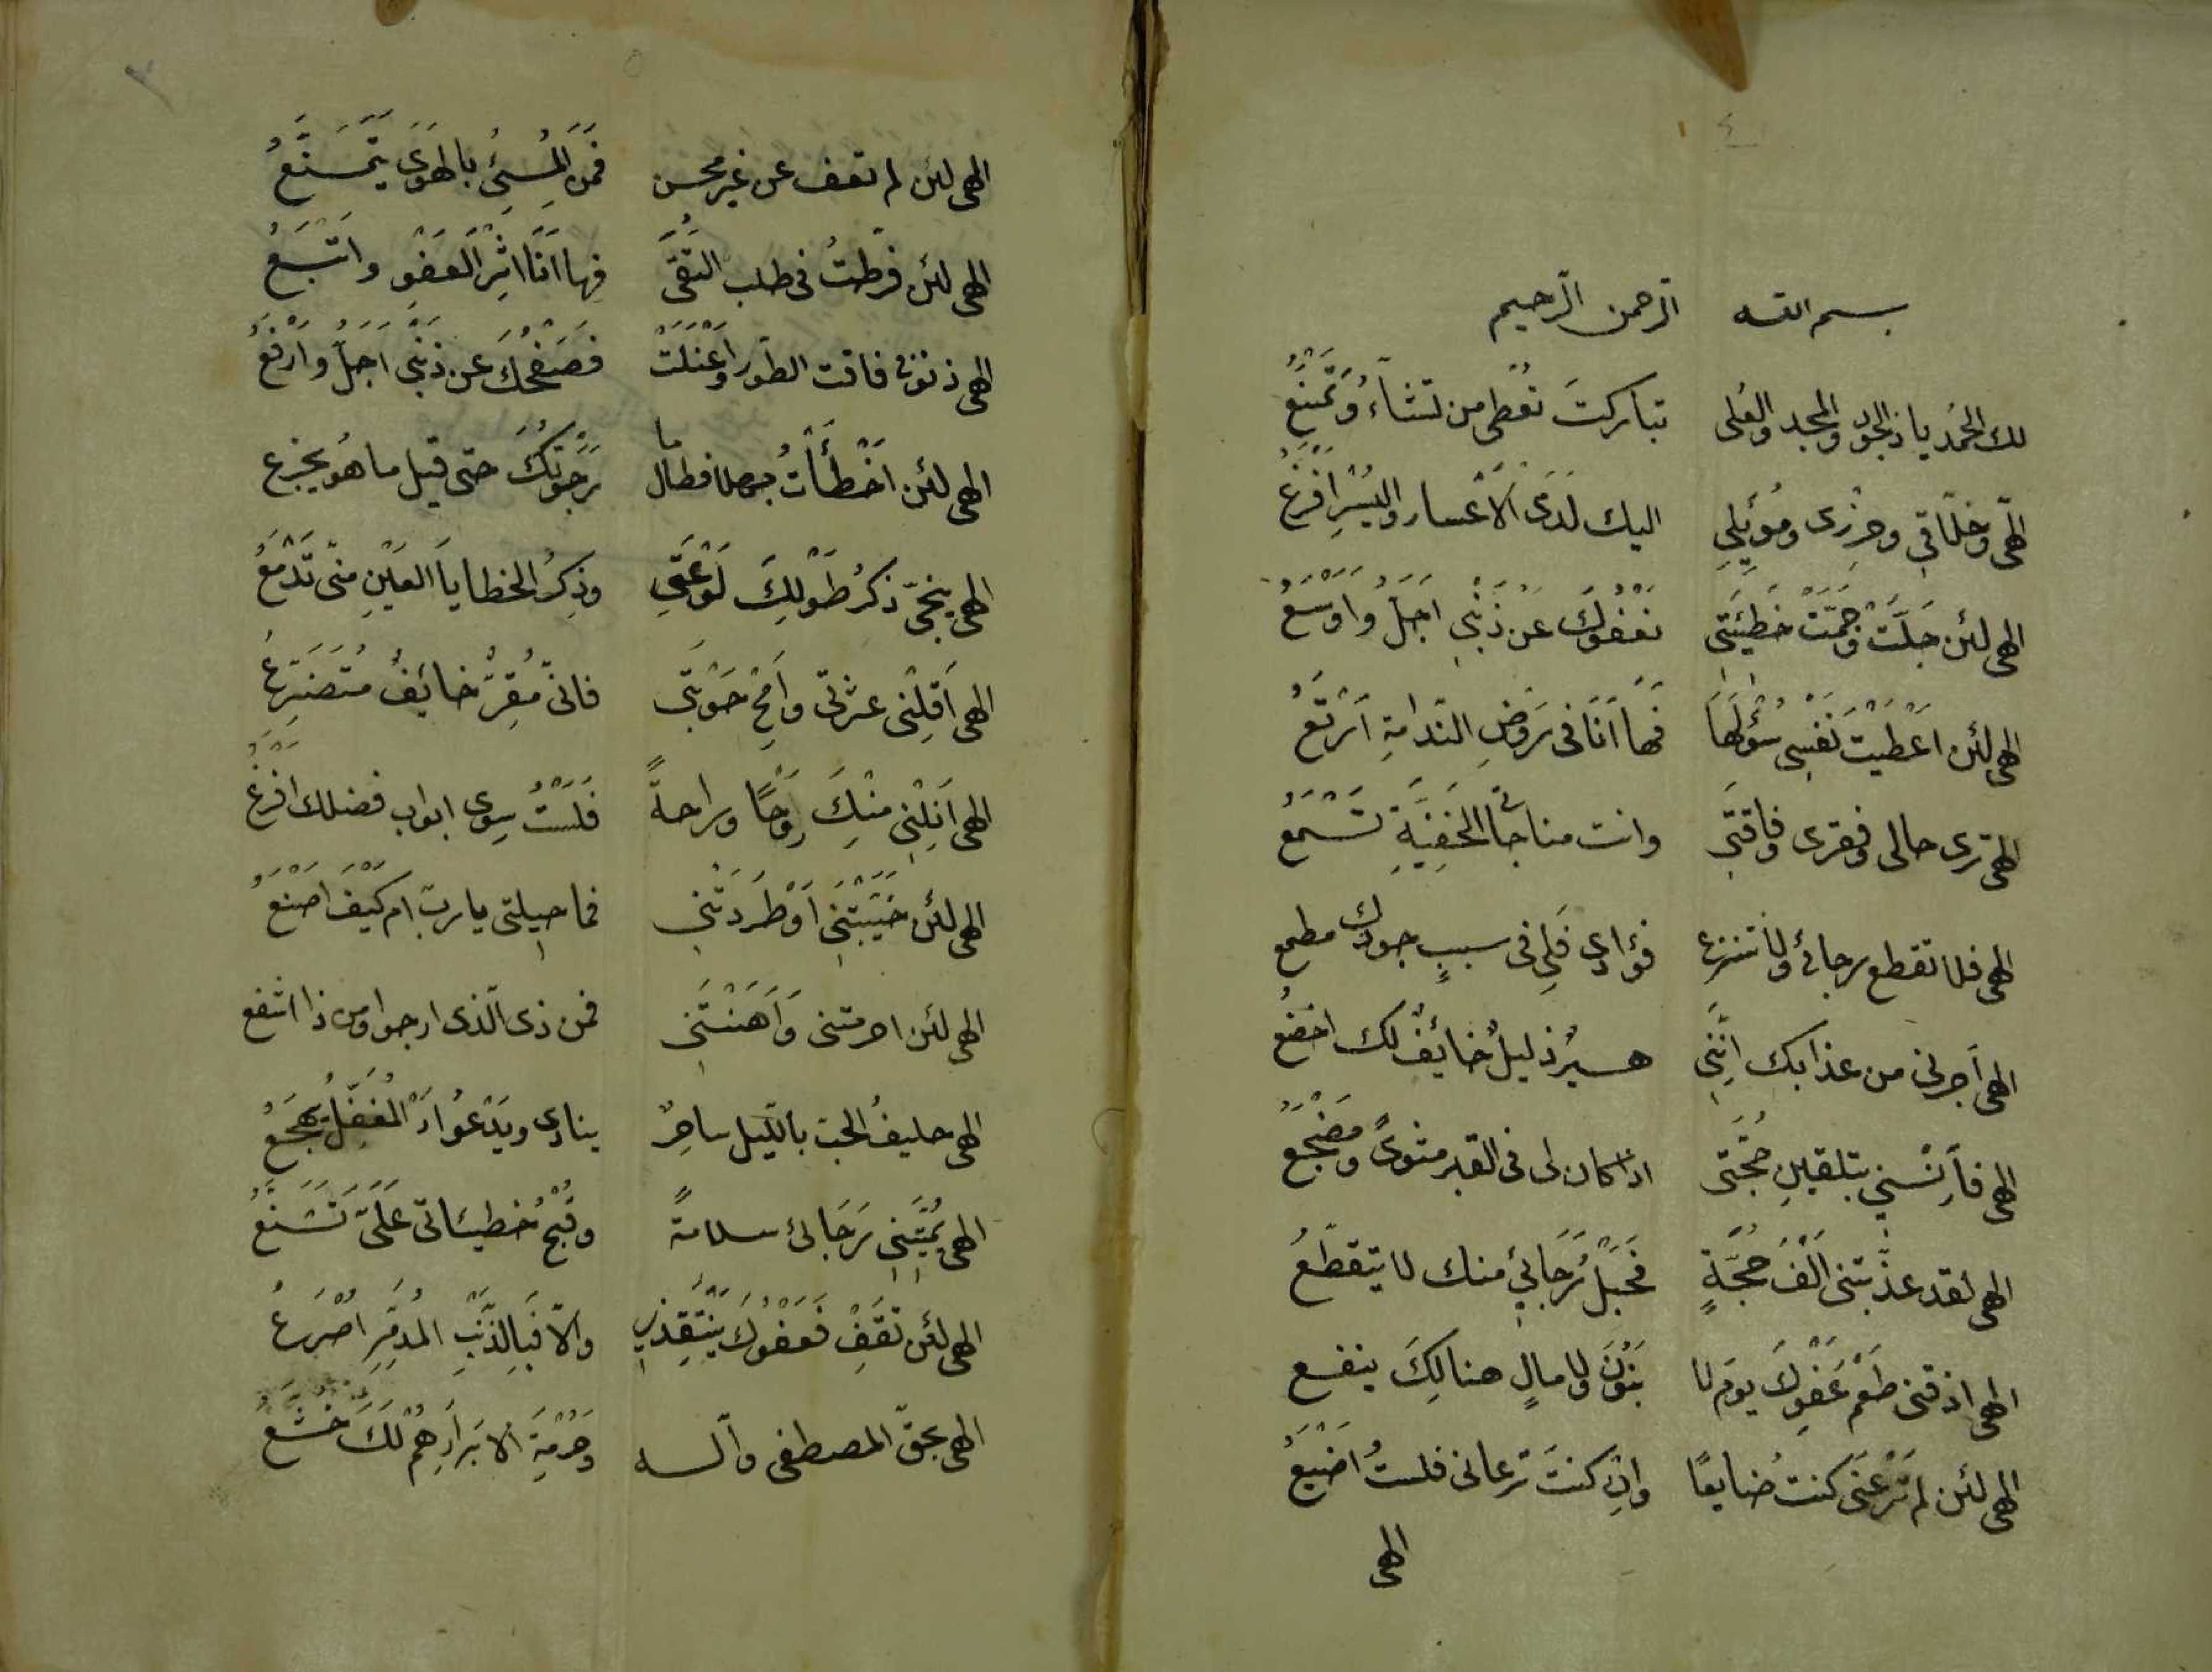 ٤
بسم الله الرحمن الرحيم
لك الحمد ياذا الجود والمجد والعلى تباركتَ تعطى من تشاءُ وتمنعُ
الهى وخلّاقى وحرزى ومُوئِلِى اليك لَدَى الاعسار واليُسْرِ افزعُ
الهى لئن جلّت وجمّت خطيئتى فعفوك عن ذنبى اجلّ واوسعُ
الهى لئن اعطيت نفسى سُؤلها فها انا فى روض الندامةِ ارتعُ
الهى ترى حالى وفقرى وفاقتى وانت مناجاتى الخفيّةِ تسمعُ
الهى فلا تقطع رجائى ولا تزغ فؤادى فلى فى سببِ جودك مطمع
الهى أجرنى من عذابك انّنى اسيرُ ذليلٌ خايفٌ لك اخضعُ
الهى فآنسنى بتلقين حجّتى اذا كان لى فى القبر مثوىً ومضجعُ
الهى لقد عذّبتنى الفَ حجّةٍ فحبلُ رجائى منك لا يتقطّعُ
الهى اذقنى طعم عفوكَ يوم لا بنونَ ولا مالٍ هنالكَ ينفع
الهى لئن لم ترعنى كنت ضايعًا وان كنتَ ترعانى فلستُ اضيّعُ
الهى
الهى لئن لم تعف عن غير محسن فمن لمسيئٍ بالهوى يتمتّعُ
الهى لئن فرّطتُ فى طلب التقى فها انا اثر العفو واتبعُ
الهى ذنوبى فاقت الطور واعتلت فصفحك عن ذنبى اجلّ وارفعُ
الهى لئن اخطأتُ جهلا فطال ما رجوتك حتى قيل ما هو يجزع
الهى ينجّى ذكرُ طَولِكَ لوعتى وذكرُ الخطايا العينِ منّى تدمعُ
الهى أقلنى عثرتى وامح حوبتى فانّى مقرٌّ خايفٌ متضرعُ
الهى انلنى منك روحًا وراحةً فلستُ سوى ابواب فضلك اقرعُ
الهى لئن خيّبتنى او طردتنى فما حيلتى يا ربّ ام كيف اصنعُ
الهى لئن احرمتنى وأهنتنى فمن ذى الّذى ارجوا ومن ذا اشفع
الهى حليفُ الحبّ بالّيل ساهرٌ ينادى ويدعُوا اذ المغفّلُ يهجعُ
الهى يمنّينى رجائى سلامةً وقبحُ خطيئاتى علىّ تشنعُ
الهى لئن تقف فعفوك ينتقذنى والّا فبالذنبِ المدمّرِ اصرعُ
الهى بحقّ المصطفى وآله وحرمةِ الابرارهم لك خشّعُ